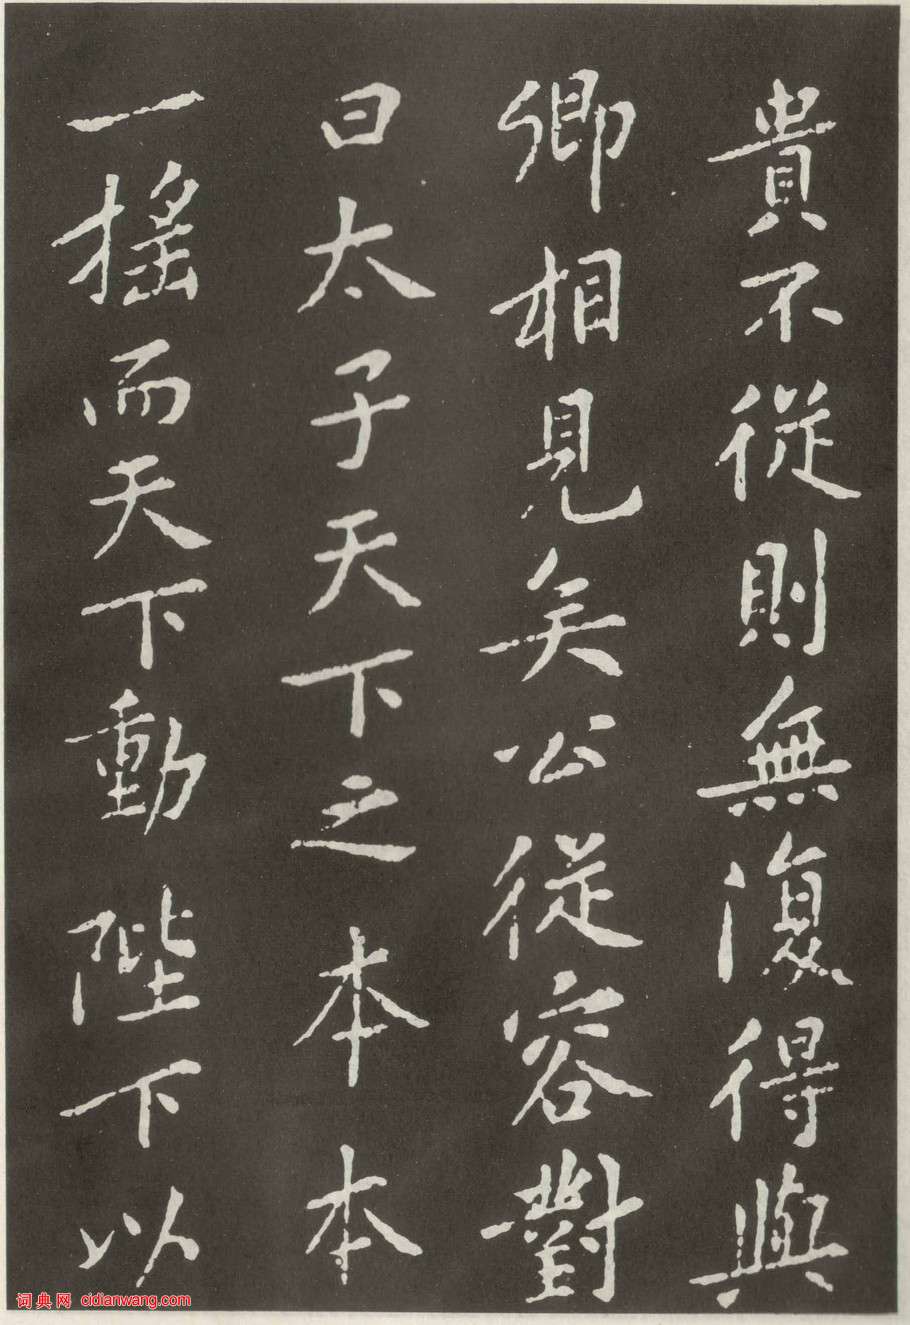 貴不從則無復得與
卿相見矣公從容對
曰太子天下之本本
一摇而天下動陛下以
词典网 cidianwang.com